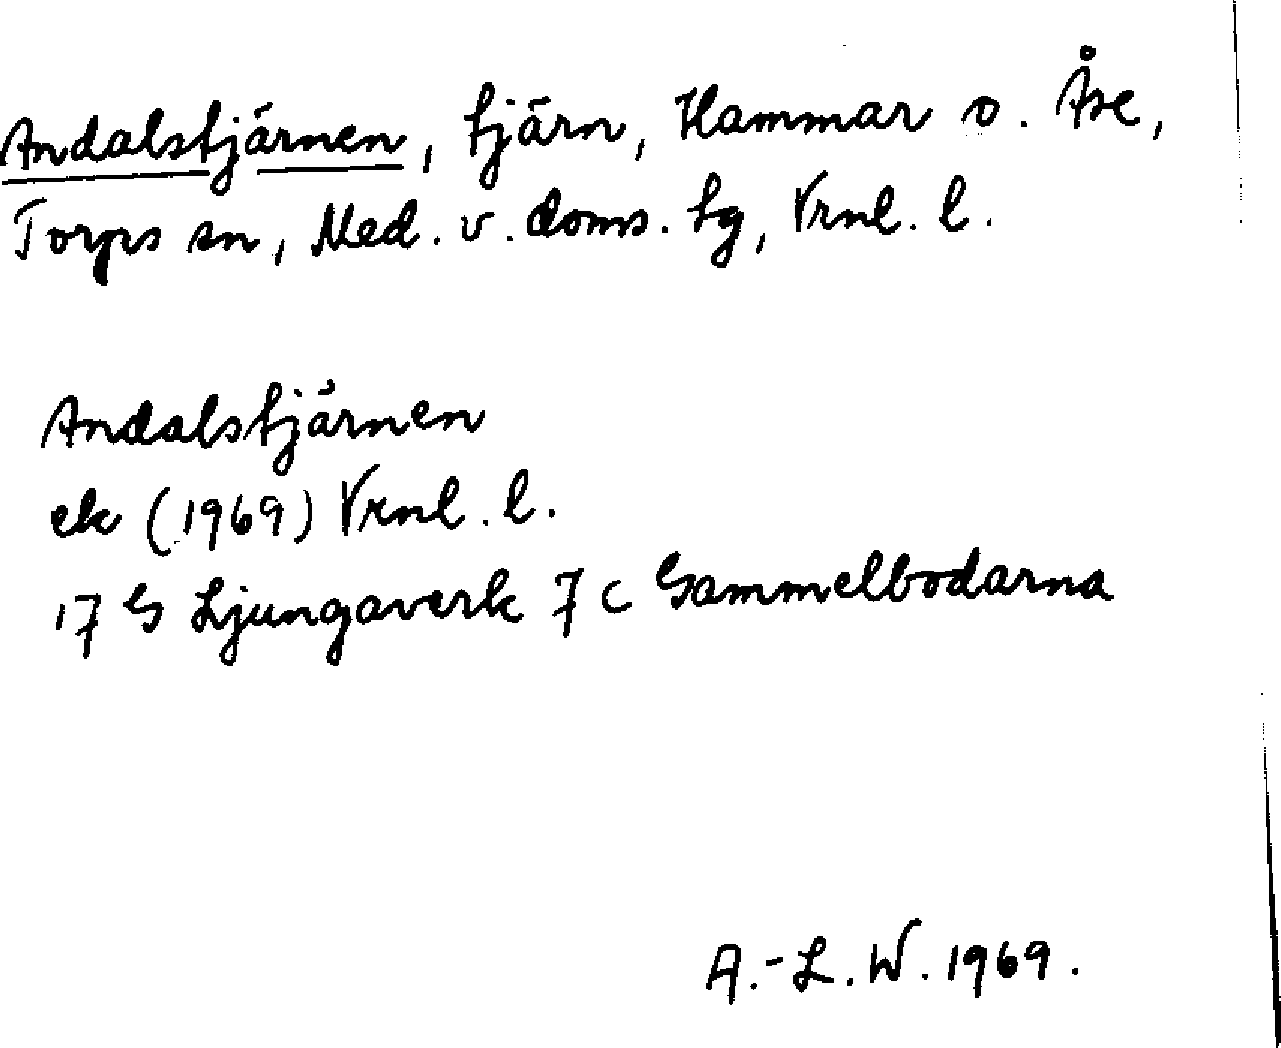 Andalstjärnen, tjärn, Hammar o. Åse,
Torps sn, Med. v. doms. tg, Vrnl. l.
Andalstjärnen
ek (1969) Vrnl. l.
17 G Ljungaverk 7 c Gammelbodarna
A.-L. W. 1969.